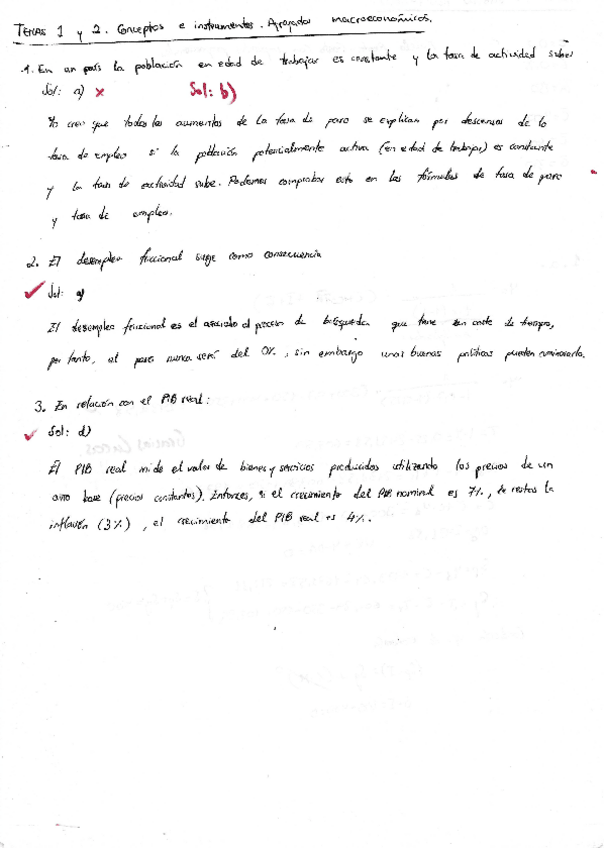 TEMAS 1 y 2. Conceptos e instrumentos. Agregados macroeconómicos.
1. En un país la población en edad de trabajar es constante y la tasa de actividad sube
Sol: a) x Sol: b)
Yo creo que todos los aumentos de la tasa de paro se explican por descensos de la
tasa de empleo si la población potencialmente activa (en edad de trabajar) es constante
y la tasa de actividad sube. Podemos comprobar esto en las fórmulas de tasa de paro
y tasa de empleo.
2. El desempleo friccional surge como consecuencia
Sol: a)
El desempleo friccional es el asociado al proceso de búsqueda que tiene un coste de tiempo,
por tanto, el paro nunca será del 0%, sin embargo unas buenas políticas pueden
3. En relación con el PIB real:
Sol: d)
El PIB real mide el valor de bienes y servicios producidos utilizando los precios de un
año base (precios constantes). Entonces, si el crecimiento del PIB nominal es 7%, le restas la
inflación (3%), el crecimiento del PIB real es 4%.